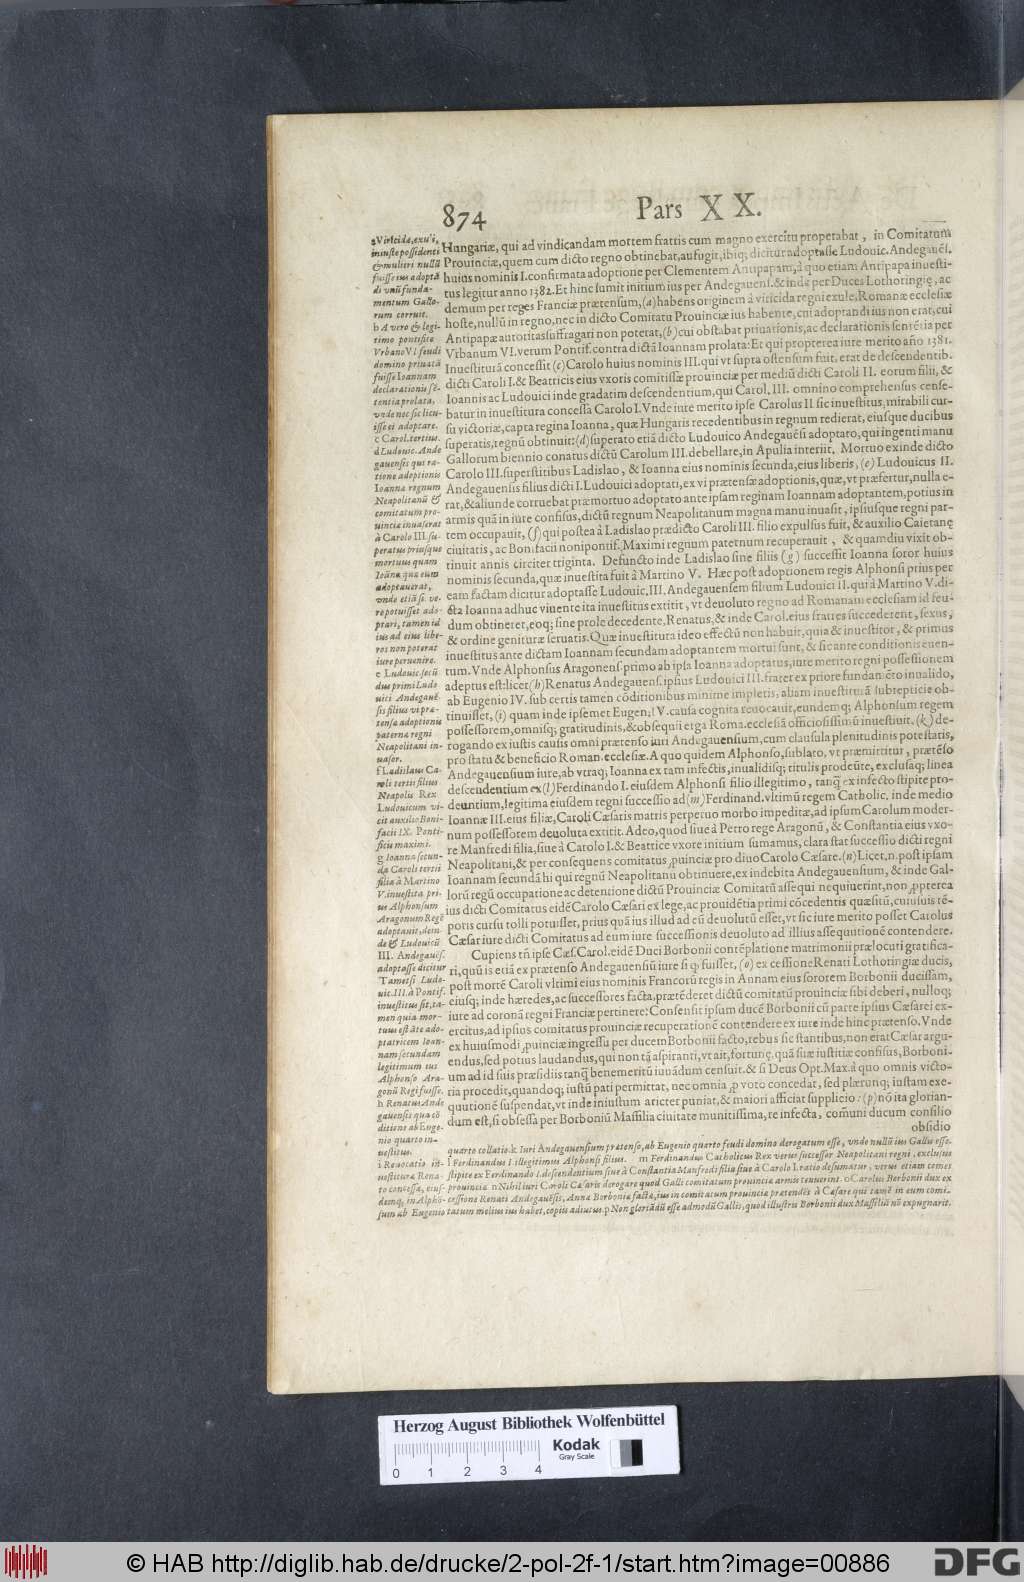 874 Pars XX.
Hungariæ, qui ad vindicandam mortem fratris cum magno exercitu properabat, in Comitatum
Prouinciæ, quem cum dicto regno obtinebat, aufugit, ibiq; dicitur adoptasse Ludouic. Andegauēs.
huius nominis I. confirmata adoptione per Clementem Antipapam, à quo etiam Antipapa inuesti-
tus legitur anno 1382. Et hinc sumit initium ius per Andegauens. & inde per Duces Lothoringię, ac
demum per reges Franciæ prætensum, (a) habens originem à viricida regni exule, Romanæ ecclesiæ
hoste, nullū in regno, nec in dicto Comitatu Prouinciæ ius habente, cui adoptandi ius non erat, cui
Antipapæ autoritas suffragari non poterat, (b) cui obstabat priuationis, ac declarationis sentētia per
Vrbanum VI. verum Pontif. contra dictā Ioannam prolata: Et qui propterea iure merito año 1381.
Inuestiturā concessit (c) Carolo huius nominis III. qui vt supra ostensum fuit, erat de descendentib.
dicti Caroli I. & Beatricis eius vxoris comitissæ prouinciæ per mediū dicti Caroli II. eorum filii, &
Ioannis ac Ludouici inde gradatim descendentium, qui Carol. III. omnino comprehensus cense-
batur in inuestitura concessa Carolo I. Vnde iure merito ipse Carolus II sic inuestitus, mirabili cur-
su victoriæ, capta regina Ioanna, quæ Hungaris recedentibus in regnum redierat, eiusque ducibus
superatis, regnū obtinuit: (d) superato etiā dicto Ludouico Andegauēsi adoptato, qui ingenti manu
Gallorum biennio conatus dictū Carolum III. debellare, in Apulia interiit. Mortuo exinde dicto
Carolo III. superstitibus Ladislao, & Ioanna eius nominis secunda, eius liberis, (e) Ludouicus II.
Andegauensis filius dicti I. Ludouici adoptati, ex vi prætensæ adoptionis, quæ, vt præfertur, nulla e-
rat, & aliunde corruebat præmortuo adoptato ante ipsam reginam Ioannam adoptantem, potius in
armis quā in iure confisus, dictū regnum Neapolitanum magna manu inuasit, ipsiusque regni par-
tem occupauit, (f) qui postea à Ladislao prædicto Caroli III. filio expulsus fuit, & auxilio Caietanę
ciuitatis, ac Bonifacii noni pontif. Maximi regnum paternum recuperauit, & quamdiu vixit ob-
tinuit annis circiter triginta. Defuncto inde Ladislao sine filiis (g) successit Ioanna soror huius
nominis secunda, quæ inuestita fuit à Martino V. Hæc post adoptionem regis Alphonsi prius per
eam factam dicitur adoptasse Ludouic. III. Andegauensem filium Ludouici II. qui à Martino V. di-
cta Ioanna adhuc viuente ita inuestitus extitit, vt deuoluto regno ad Romanam ecclesiam id feu-
dum obtineret, eoq; sine prole decedente, Renatus, & inde Carol. eius fratres succederent, sexus,
& ordine genituræ seruatis. Quæ inuestitura ideo effectū non habuit, quia & inuestitor, & primus
inuestitus ante dictam Ioannam secundam adoptantem mortui sunt, & sic ante conditionis euen-
tum. Vnde Alphonsus Aragonens. primo ab ipsa Ioanna adoptatus, iure merito regni possessionem
adeptus est: licet (h) Renatus Andegauens. ipsius Ludouici III. frater ex priore fundamēto inualido,
ab Eugenio IV. sub certis tamen cōditionibus minime impletis, aliam inuestiturā subrepticie ob-
tinuisset, (i) quam inde ipsemet Eugen. IV. causa cognita reuocauit, eundemq; Alphonsum regem
possessorem, omnisq; gratitudinis, & obsequii erga Roma. ecclesiā officiosissimū inuestiuit. (k) de-
rogando ex iustis causis omni prætenso iuri Andegauensium, cum clausula plenitudinis potestatis,
pro statu & beneficio Roman. ecclesiæ. A quo quidem Alphonso, sublato, vt præmittitur, prætēso
Andegauensium iure, ab vtraq; Ioanna ex tam infectis, inualidisq; titulis prodeūte, exclusaq; linea
descendentium ex (l) Ferdinando I. eiusdem Alphonsi filio illegitimo, tanq̃ ex infecto stipite pro-
deuntium, legitima eiusdem regni successio ad (m) Ferdinand. vltimū regem Catholic. inde medio
Ioannæ III. eius filiæ, Caroli Cæsaris matris perpetuo morbo impeditæ, ad ipsum Carolum moder-
num possessorem deuoluta extitit. Adeo, quod siue à Petro rege Aragonū, & Constantia eius vxo-
re Manfredi filia, siue à Carolo I. & Beatrice vxore initium sumamus, clara stat successio dicti regni
Neapolitani, & per consequens comitatus ꝓuinciæ pro diuo Carolo Cæsare. (n) Licet. n. post ipsam
Ioannam secundā hi qui regnū Neapolitanū obtinuere, ex indebita Andegauensium, & inde Gal-
lorū regū occupatione ac detentione dictū Prouinciæ Comitatū assequi nequiuerint, non ꝓpterea
ius dicti Comitatus eidē Carolo Cæsari ex lege, ac prouidētia primi cōcedentis quæsitū, cuiusuis tē-
potis cursu tolli potuisset, prius quā ius illud ad eū deuolutū esset, vt sic iure merito posset Carolus
Cæsar iure dicti Comitatus ad eum iure successionis deuoluto ad illius assequutionē contendere.
Cupiens tñ ipse Cæs. Carol. eidē Duci Borbonii contēplatione matrimonii prælocuti gratifica-
ri, quū is etiā ex prætenso Andegauensiū iure si q̃ fuisset, (o) ex cessione Renati Lothoringiæ ducis,
post mortē Caroli vltimi eius nominis Francorū regis in Annam eius sororem Borbonii ducissam,
eiusq; inde hæredes, ac successores facta, prætēderet dictū comitatū prouinciæ sibi deberi, nulloq;
iure ad coronā regni Franciæ pertinere: Consensit ipsum ducē Borbonii cū parte ipsius Cæsarei ex-
ercitus, ad ipsius comitatus prouinciæ recuperationē contendere ex iure inde hinc prætenso. Vnde
ex huiusmodi ꝓuinciæ ingressu per ducem Borbonii facto, rebus sic stantibus, non erat Cæsar argu-
endus, sed potius laudandus, qui non tā aspiranti, vt ait, fortunę, quā suæ iustitiæ confisus, Borboni-
um ad id suis præsidiis tanq̃ benemeritū iuuādum censuit. & si Deus Opt. Max. à quo omnis victo-
ria procedit, quandoq; iustū pati permittat, nec omnia ꝓ voto concedat, sed plærunq; iustam exe-
quutionē suspendat, vt inde iniustum acrieter puniat, & maiori afficiat supplicio: (p) nō ita glorian-
dum est, si obsessa per Borboniū Massilia ciuitate munitissima, re infecta, com̃uni ducum consilio
obsidio
a Viricida, exuli,
iniuste possidenti
& mulieri nullū
fuisse ius adoptā
di vnū funda-
mentum Gallo-
rum corruit.
b A vero & legi-
timo pontifice
Vrbano VI feudi
domino priuatā
fuisse Ioannam
declarationis sē-
tentia prolata,
vnde nec sic licu-
isse ei adoptare.
c Carol. tertius.
d Ludouic. Ande
gauensis qui ra-
tione adoptionis
Ioanna regnum
Neapolitanū &
comitatum pro-
uincia inuaserat
à Carolo III. su-
peratus priusque
mortuus quam
Ioāna qua eum
adoptauerat,
vnde etiā si ve-
re potuisset ado-
ptari, tamen id
ius ad eius libe-
ros non poterat
iure peruenire.
e Ludouic. secū
dus primi Ludo
uici Andegauē-
sis filius vi præ-
tensa adoptionis
paterna regni
Neapolitani in-
uasor.
f Ladislaus Ca-
roli tertii filius
Neapolis Rex
Ludouicum vi-
cit auxilio Boni-
facii IX. Ponti-
ficis maximi.
g Ioanna secun-
da Caroli tertii
filia à Martino
V. inuestita pri-
us Alphonsum
Aragonum Regē
adoptauit, dein-
de & Ludouicū
III. Andegauēs.
adoptasse dicitur
Tametsi Ludo-
uic. III. à Pontif.
inuestitus sit, ta-
men quia mor-
tuus est āte ado-
ptatricem Ioan-
nam secundam
legitimum ius
Alphonso Ara-
gonū Regi fuisse.
h Renatus Ande
gauensis qua cō
ditione ab Euge-
nio quarto in-
uestitus.
i Reuocatio in-
uestitura Rena-
to concessæ, eius-
demq; in Alphō-
sum ab Eugenio
quarto collatio. k Iuri Andegauensium prætenso, ab Eugenio quarto feudi domino derogatum esse, vnde nullū ius Gallis esse.
l Ferdinandus I. illegitimus Alphonsi filius. m Ferdinandus Catholicus Rex verus successor Neapolitani regni, exclusis
stipite ex Ferdinando I. descendentium siue à Constantia Mansredi filia siue à Carolo I. ratio desumatur, verus etiam comes
prouincia n Nihil iuri Caroli Cæsaris derogare quod Galli comitatum prouincia armis tenuerint. o Carolus Borbonii dux ex
cessione Renati Andegauēsis, Anna Borbonia facta, ius in comitatum prouincia prætendēs à Cæsare qui tamē in eum comi-
tatum melius ius habet, copiis adiutus. p Non gloriādū esse admodū Gallis, quod illustris Borbonii dux Massiliā nō expugnarit.
Herzog August Bibliothek Wolfenbüttel
0 1 2 3 4
Kodak
Gray Scale
© HAB http://diglib.hab.de/drucke/2-pol-2f-1/start.htm?image=00886
DFG